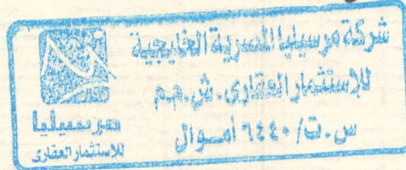 شركة مرسيليا المصرية الخليجية
للإستثمار العقارى. ش.م.م
س.ت/ ٦٤٤٠ أموال
مرسيليا
للاستثمار العقارى